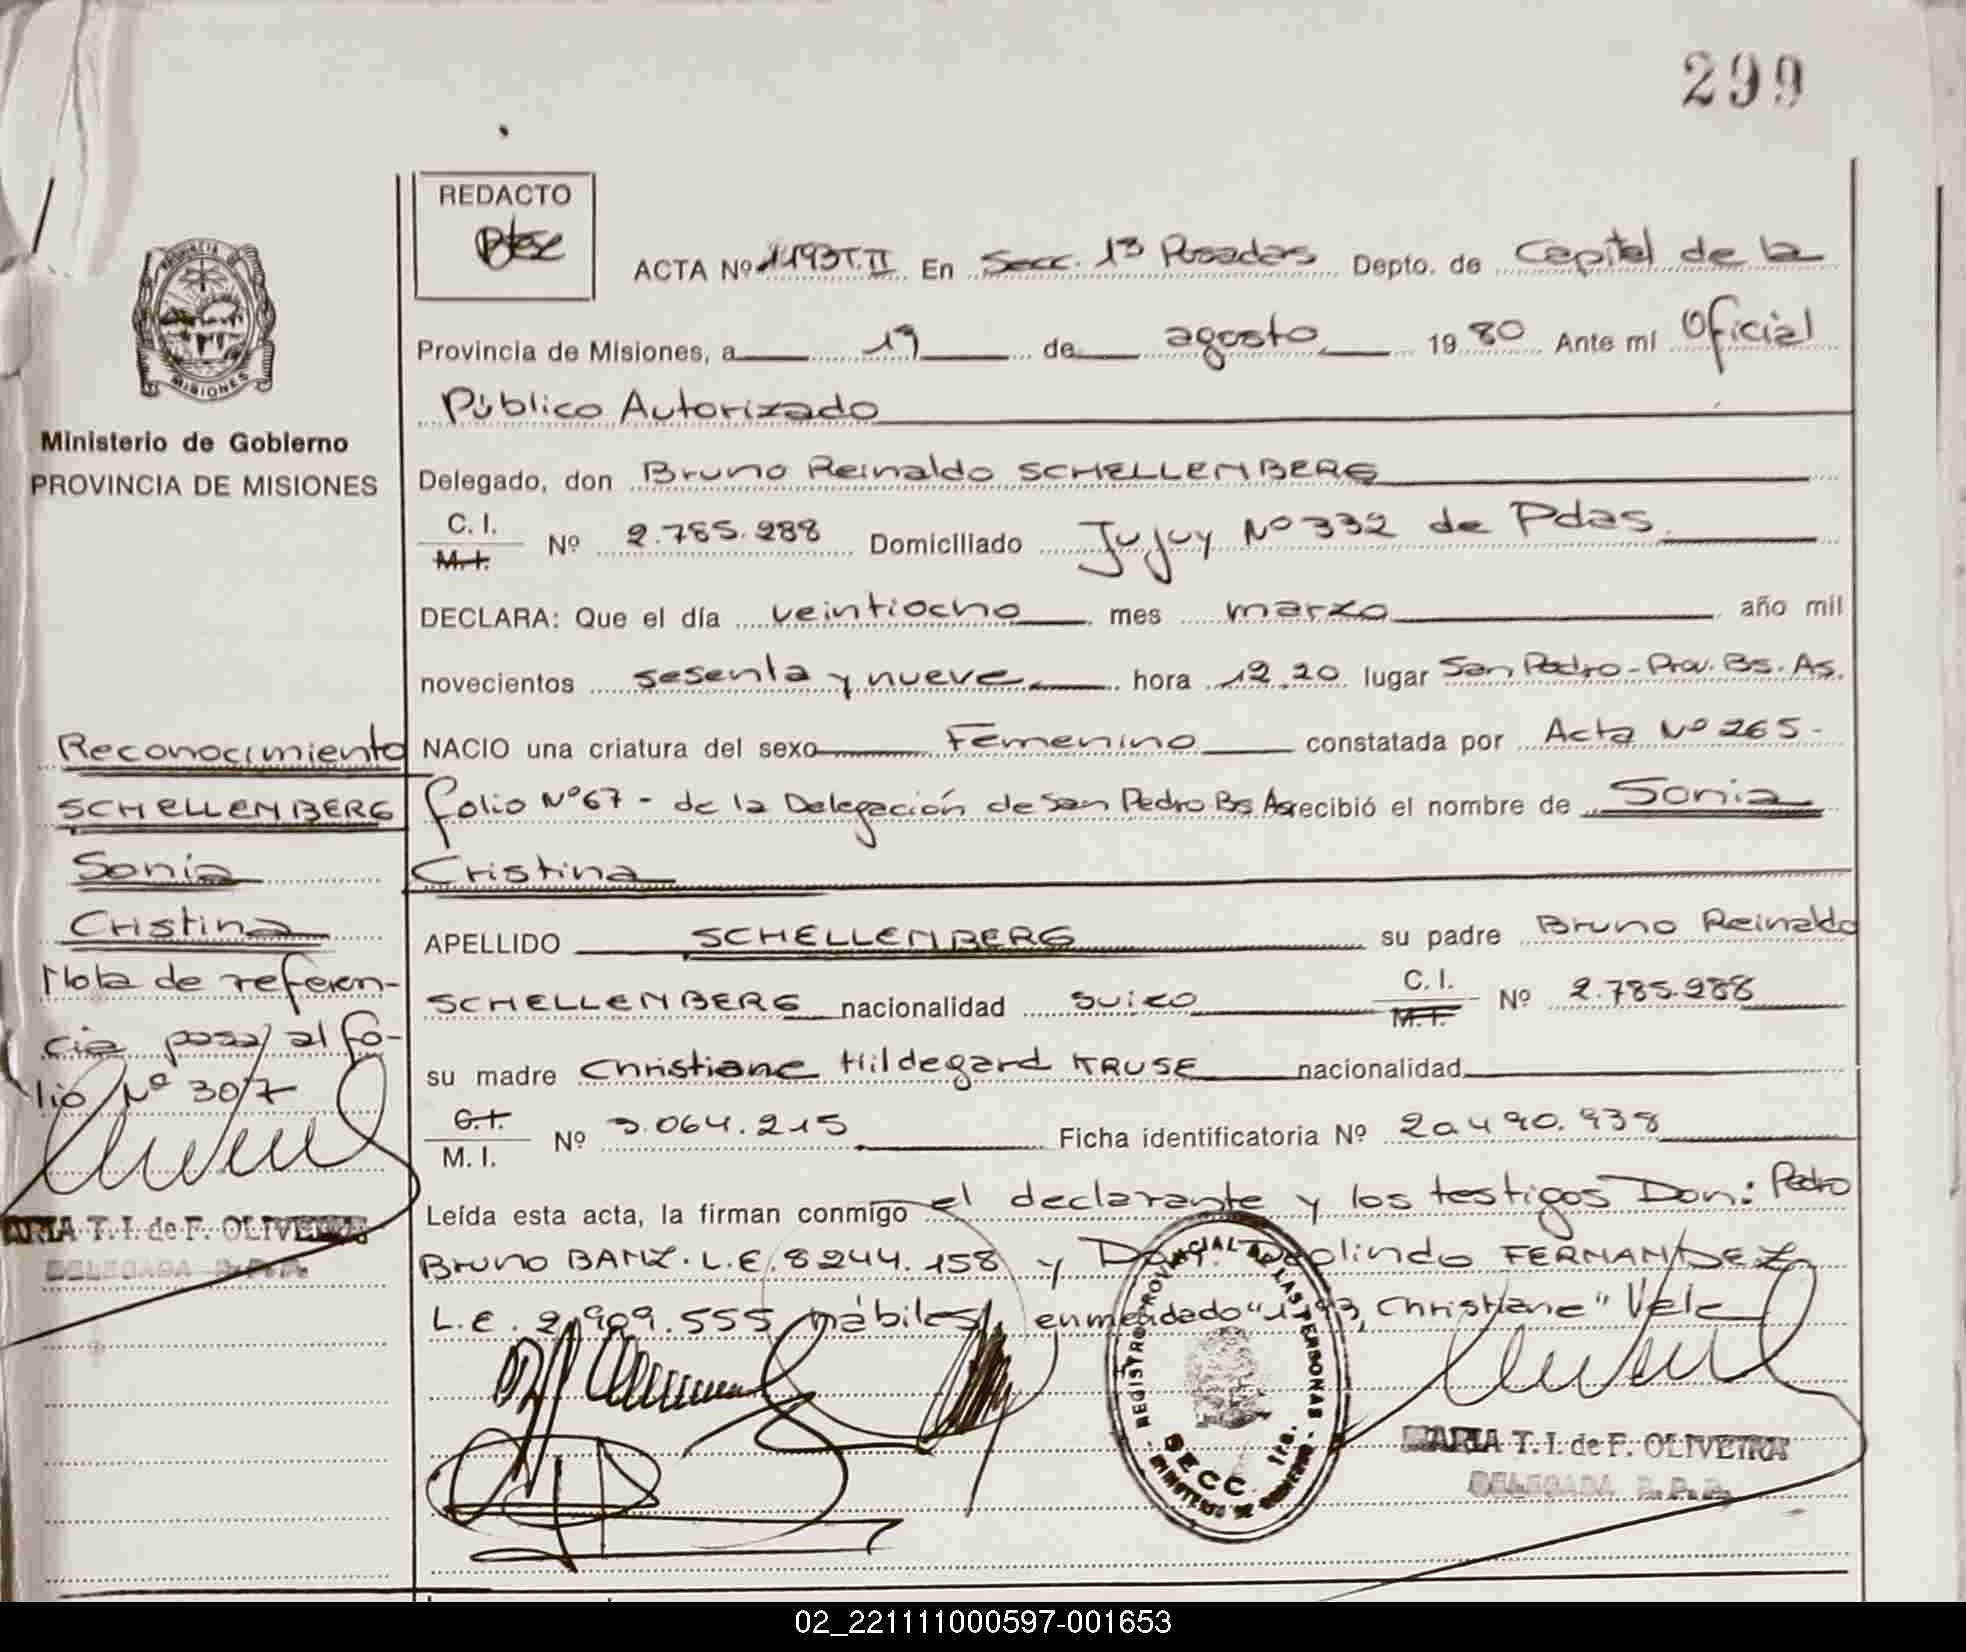 299
REDACTO
ACTA Nº 1193 T.II En Secc. 1ª Posadas Depto. de Capital de la
Provincia de Misiones, a 19 de agosto 1980 Ante mí Oficial
Público Autorizado
Ministerio de Gobierno
PROVINCIA DE MISIONES
Delegado, don Bruno Reinaldo SCHELLENBERG
C. I.
M. I. Nº 2.785.288 Domiciliado Jujuy Nº 332 de Pdas.
DECLARA: Que el día veintiocho mes marzo año mil
novecientos sesenta y nueve hora 12.20 lugar San Pedro - Prov. Bs. As.
NACIO una criatura del sexo Femenino constatada por Acta Nº 265 -
folio Nº 67 - de la Delegación de San Pedro Bs As recibió el nombre de Sonia
Cristina
APELLIDO SCHELLENBERG su padre Bruno Reinaldo
SCHELLENBERG nacionalidad suizo C. I.
M. I. Nº 2.785.288
su madre Christiane Hildegard KRUSE nacionalidad
C. I.
M. I. Nº 3.064.215 Ficha identificatoria Nº 2a490.938
Leída esta acta, la firman conmigo el declarante y los testigos Don: Pedro
Bruno BANZ. L.E. 8244.158 y Don: Teolindo FERNANDEZ
L.E. 2.909.555 hábiles, enmendado "1193, Christiane" Vale
Reconocimiento
SCHELLENBERG
Sonia
Cristina
Nota de referen-
cia pasa al fo-
lio Nº 307
MARIA T. I. de F. OLIVEIRA
DELEGADA R.P.P.
REGISTRO PROVINCIAL DE LAS PERSONAS
SECC. 1ra.
MINISTERIO DE GOBIERNO
MARIA T. I. de F. OLIVEIRA
DELEGADA R.P.P.
PROVINCIA D
MISIONES
02_221111000597-001653